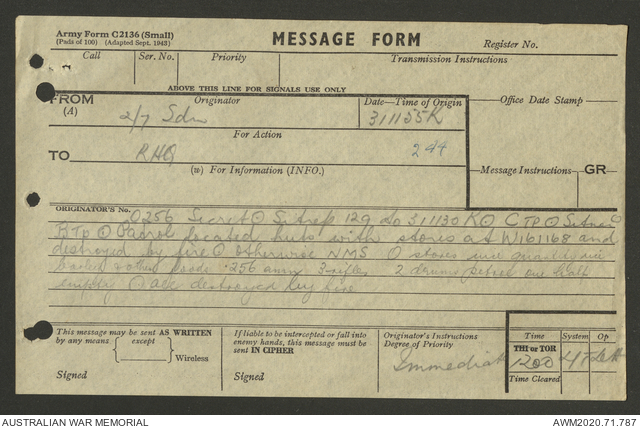 Army Form C2136 (Small)
(Pads of 100) (Adapted Sept. 1942)
MESSAGE FORM
Register No.
Call Ser. No. Priority Transmission Instructions
ABOVE THIS LINE FOR SIGNALS USE ONLY
FROM Originator Date—Time of Origin Office Date Stamp
(A) 2/7 Sqdn 311135K
For Action
TO RHQ 294
(W) For Information (INFO.) Message Instructions GR
ORIGINATOR'S No.
O256 Secret Sitrep 129 to 311130K C Tp
B Tp Patrol located huts with stores at W161168 and
destroyed by fire otherwise NMS O stores were quantity rice
other foods .256 ammo 3 rifles 2 drums petrol one half
empty all destroyed by fire
This message may be sent AS WRITTEN
by any means except
Wireless
Signed
If liable to be intercepted or fall into
enemy hands, this message must be
sent IN CIPHER
Signed
Originator's Instructions
Degree of Priority
Immediate
Time System Op
THI or TOR
1200
Time Cleared
AUSTRALIAN WAR MEMORIAL AWM2020.71.787